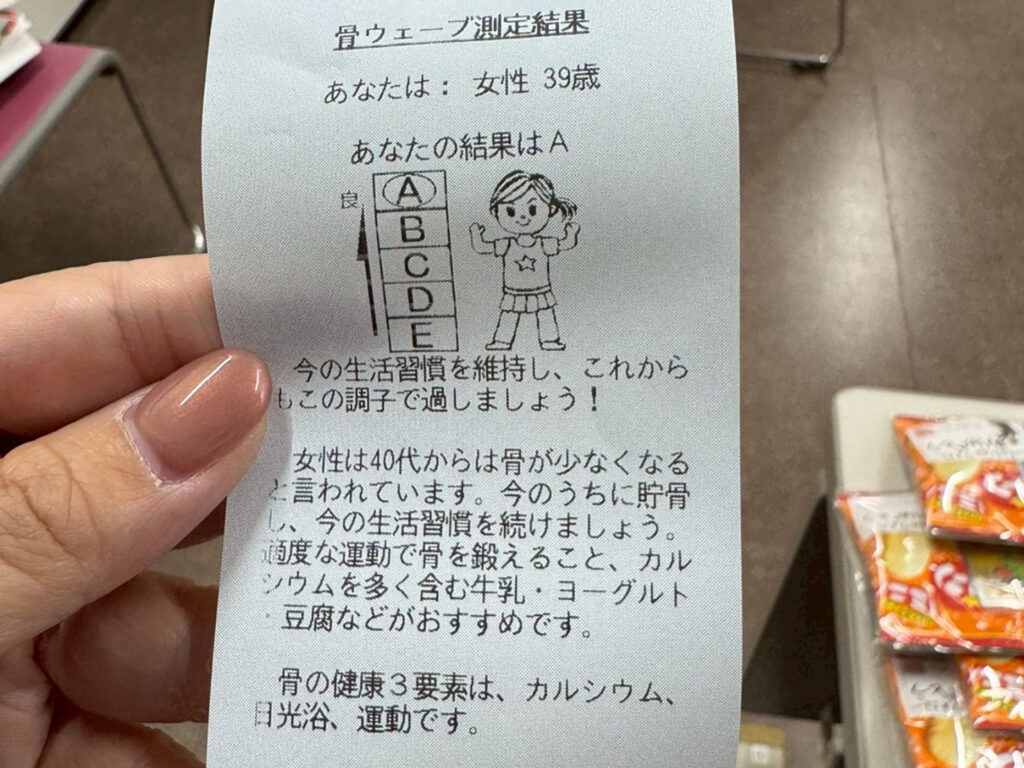 骨ウェーブ測定結果
あなたは： 女性 39歳
あなたの結果はA
良
A
B
C
D
E
今の生活習慣を維持し、これから
もこの調子で過しましょう！
女性は40代からは骨が少なくなる
と言われています。今のうちに貯骨
し、今の生活習慣を続けましょう。
適度な運動で骨を鍛えること、カル
シウムを多く含む牛乳・ヨーグルト
・豆腐などがおすすめです。
骨の健康３要素は、カルシウム、
日光浴、運動です。